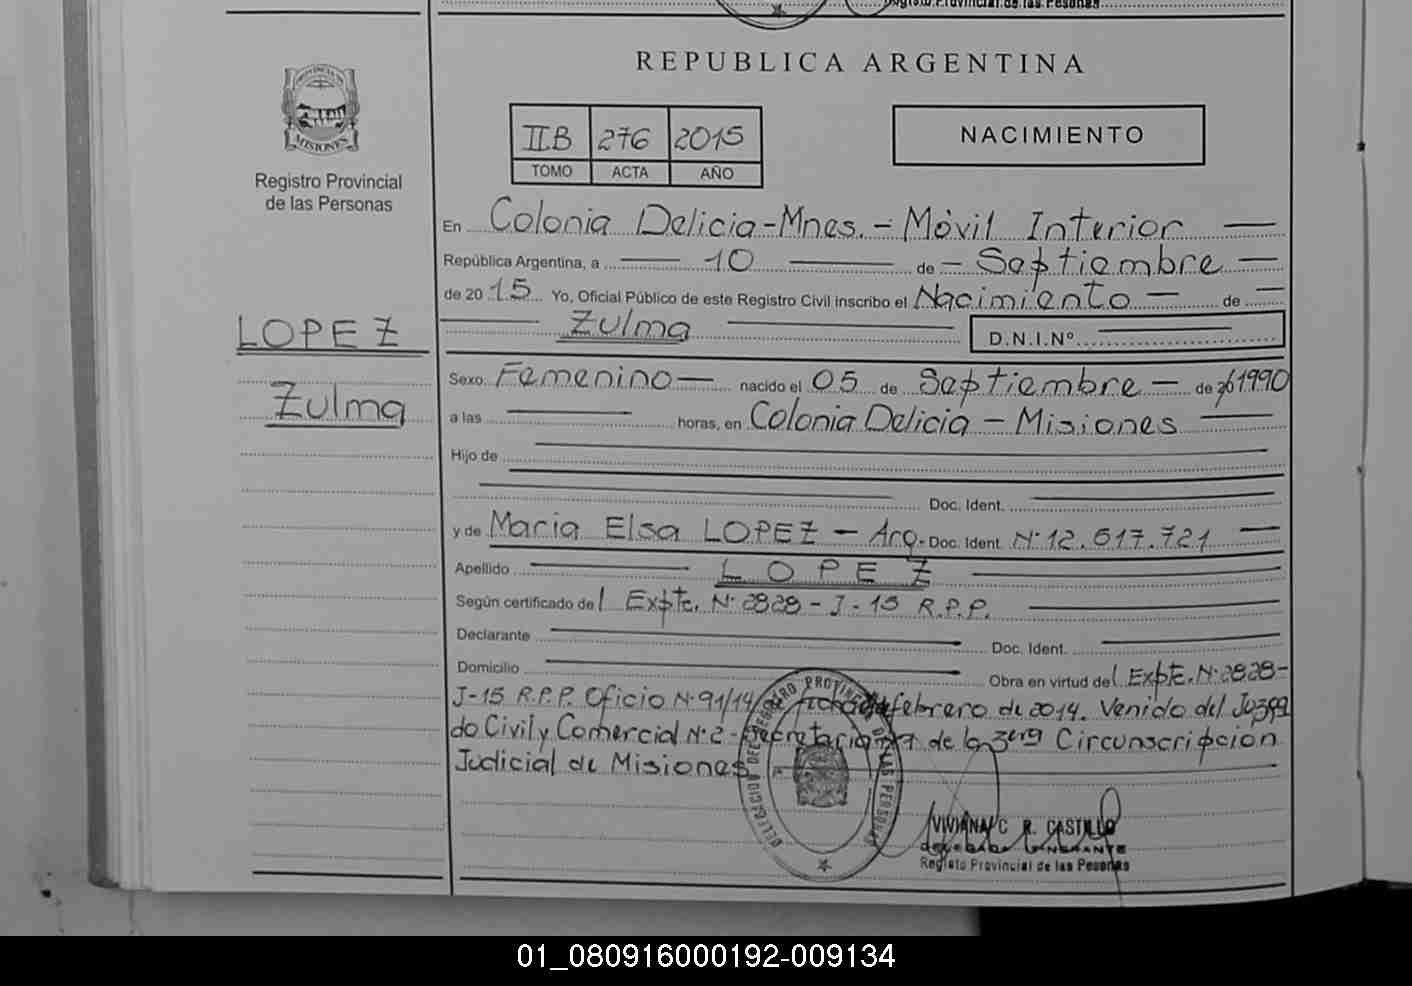 Registro Provincial de las Personas
REPUBLICA ARGENTINA
PROVINCIA DE
MISIONES
Registro Provincial
de las Personas
IIB 276 2015
TOMO ACTA AÑO
NACIMIENTO
En Colonia Delicia-Mnes.- Móvil Interior
República Argentina, a 10 de Septiembre
de 2015 Yo, Oficial Público de este Registro Civil inscribo el Nacimiento de
Zulma D.N.I.Nº
LOPEZ
Zulma
Sexo. Femenino nacido el 05 de Septiembre de 1990
a las horas, en Colonia Delicia - Misiones
Hijo de
Doc. Ident.
y de Maria Elsa LOPEZ - Arg. Doc. Ident. Nº 12.617.721
Apellido LOPEZ
Según certificado del Expte. Nº 2828-J-15 R.P.P.
Declarante Doc. Ident.
Domicilio Obra en virtud del Expte. Nº 2828-
J-15 R.P.P. Oficio Nº 91/14 de fecha febrero de 2014. Venido del Juzga
do Civil y Comercial Nº 2 - Secretaria de la 3era Circunscripción
Judicial de Misiones
DELEGACION DEL REGISTRO PROVINCIAL DE LAS PERSONAS
VIVIANA C. R. CASTILLO
Registo Provincial de las Pesonas
01_080916000192-009134